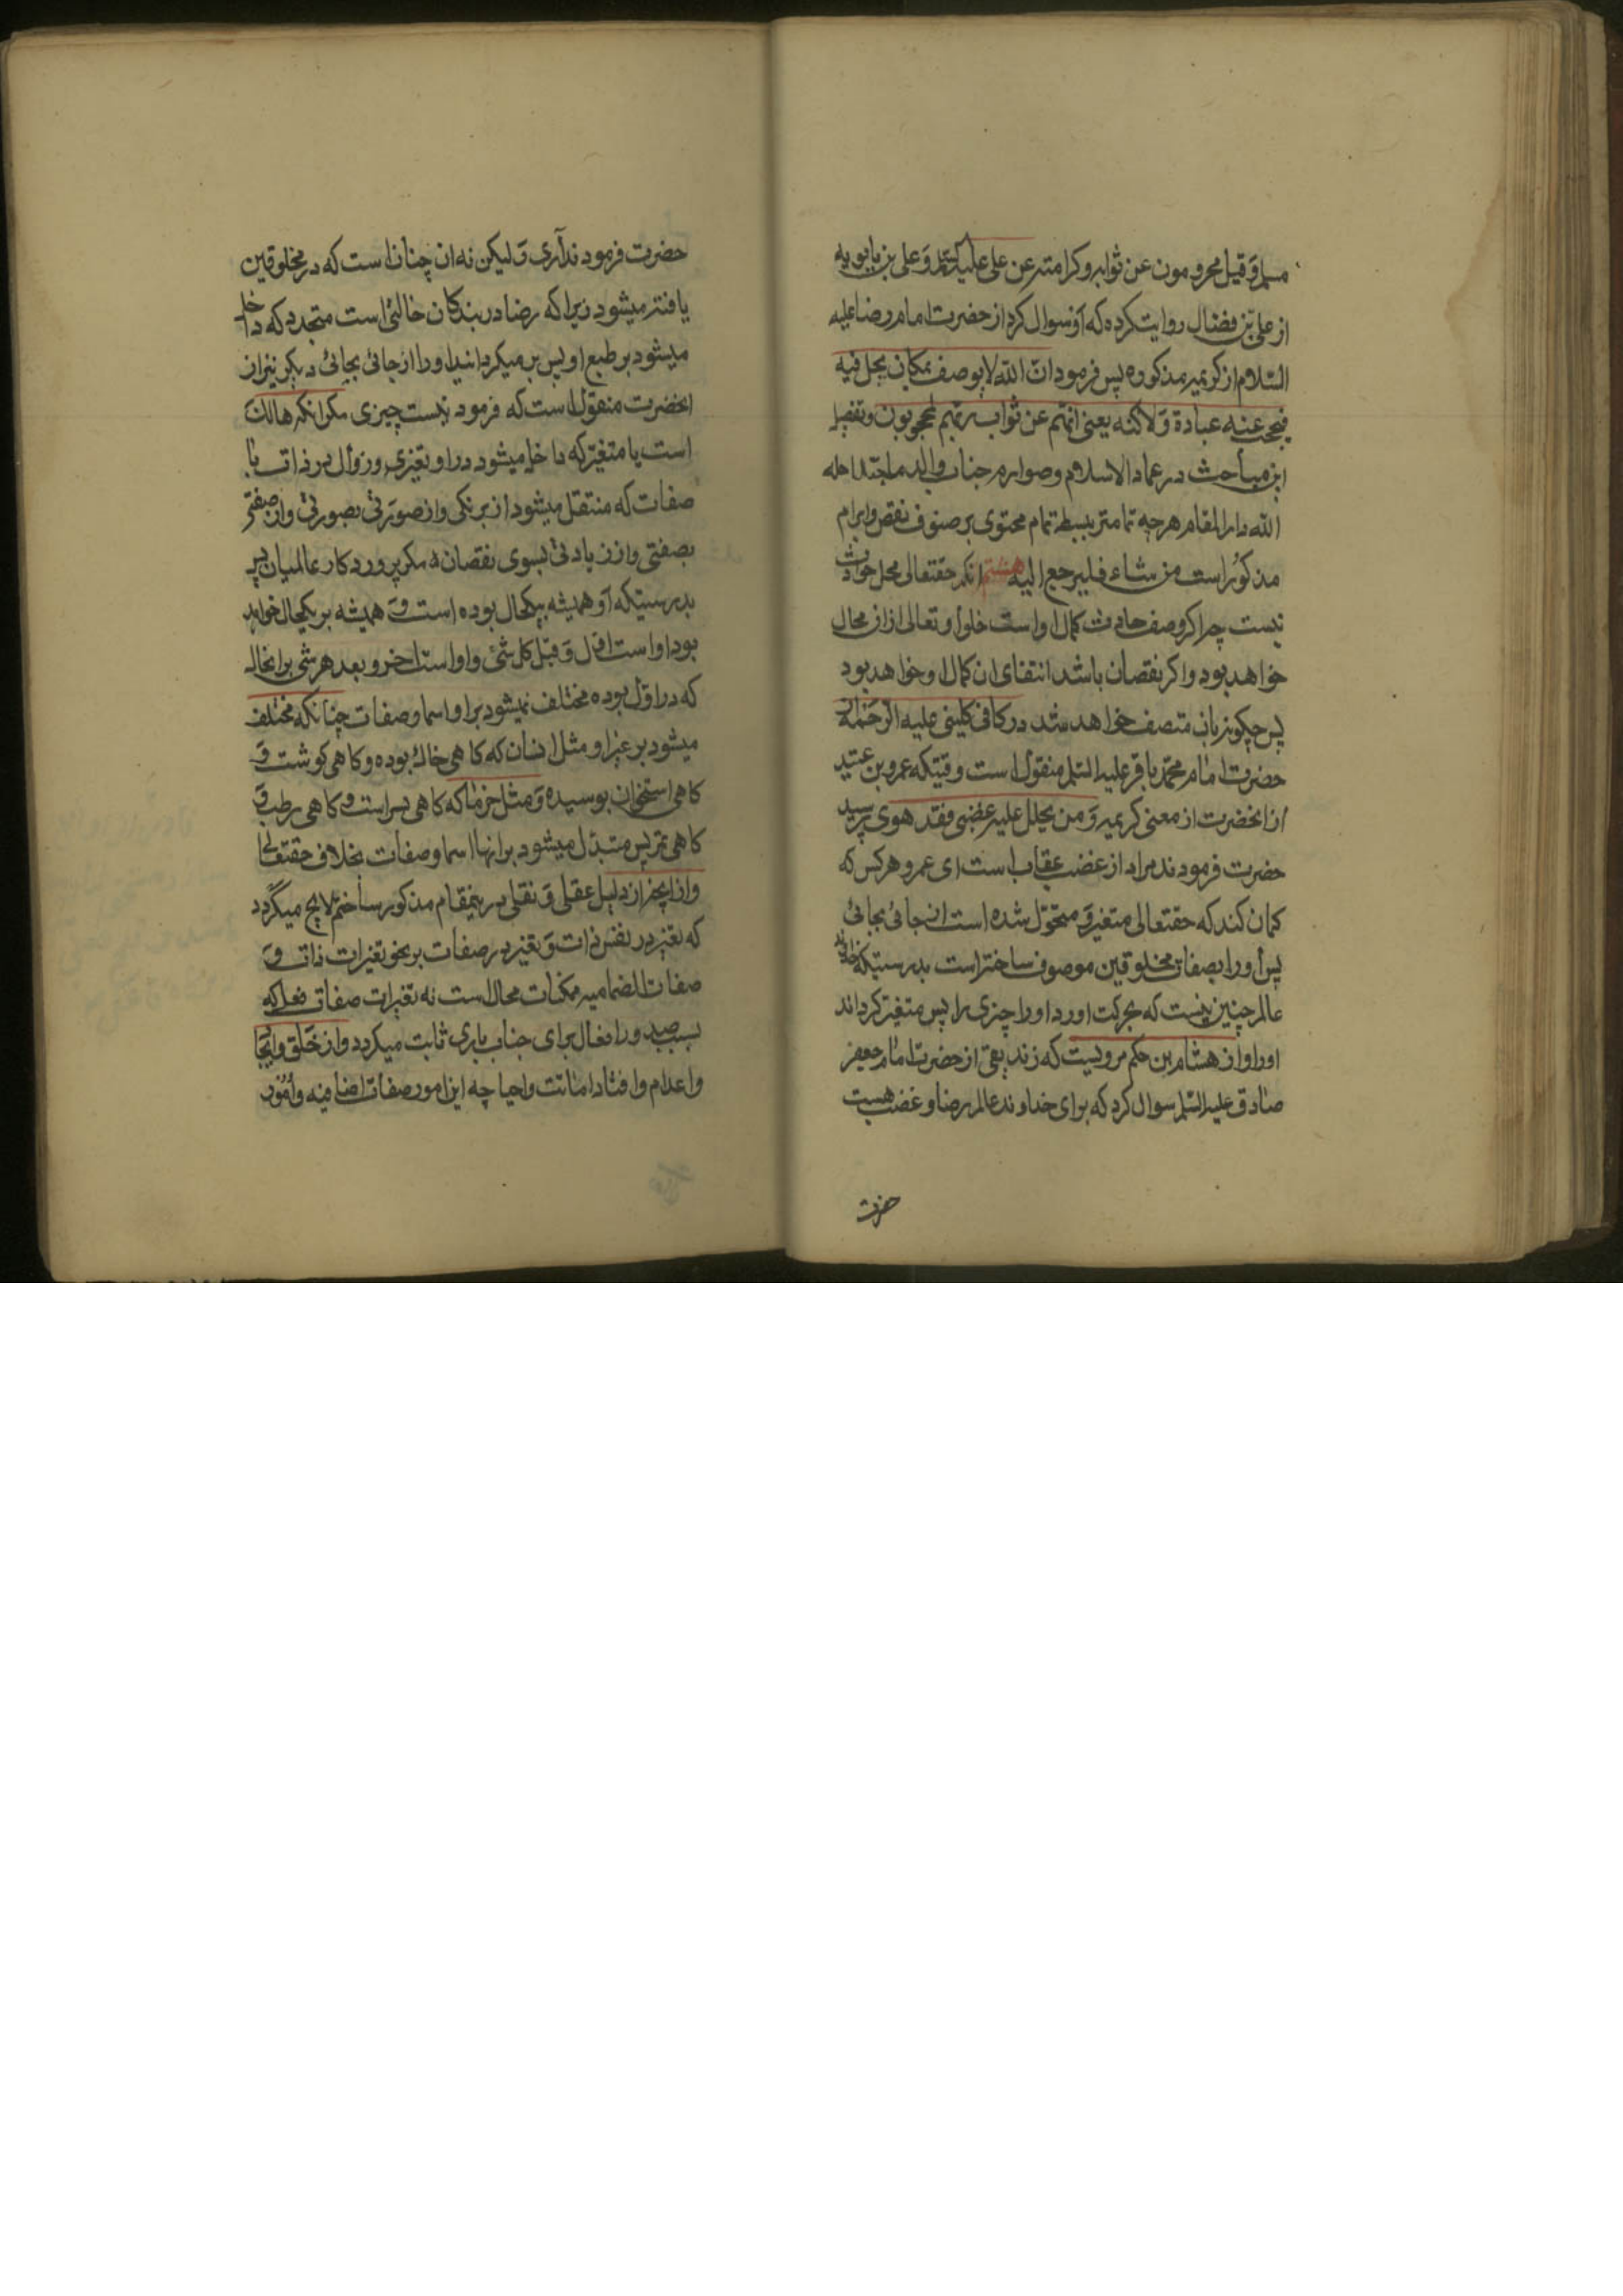 مسلم وقیل محرومون عن ثوابه وکرامته عن علی علیه السلم وعلی بن بابویه
از علی بن فضال روایت کرده که او سوال کرد از حضرت امام رضا علیه
السلام از کریمه مذکوره پس فرمود ان الله لا یوصف بمکان یحل فیه
فیحجب عنه عباده ولاکنه یعنی انهم عن ثواب ربهم لمحجوبون وتفصیل
این مباحث در عماد الاسلام وصوارم جناب والد ماجد احله
الله دار المقام هرچه تمامتر ببسط تمام محتوی بر صنوف نقض وابرام
مذکور است من شاء فلیرجع الیه هشتم انکه حقتعالی محل حوادث
نیست چرا کروصف حادث کمال اواست خلو او تعالی ازان محال
خواهد بود واکر نقصان باشد انتفای ان کمال او خواهد بود
پس چکونه بان متصف خواهد شد در کافی کلینی علیه الرحمه از
حضرت امام محمد باقر علیه السلم منقول است وقتیکه عمرو بن عبید
از انحضرت از معنی کریمه ومن یحلل علیه غضبی فقد هوی پرسید
حضرت فرمودند مراد از غضب عقاب است ای عمرو هرکس که
کمان کند که حقتعالی متغیر و متحول شده است از جائی بجائی
پس او را بصفات مخلوقین موصوف ساخته است بدرستیکه خداوند
عالم چنین نیست که بحرکت اورد او را چیزی را پس متغیر کرداند
اورا واز هشام بن حکم مرویست که زندیقی از حضرت امام جعفر
صادق علیه السلم سوال کرد که برای خداوند عالم رضا و غضب هست
حضرت
حضرت فرمودند آری ولیکن نه ان چنان است که در مخلوقین
یافته میشود زیرا که رضا در بندکان حالتی است متجدد که داخل
میشود بر طبع او پس بر میکرداند او را از جائی بجائی دیکر نیز از
انحضرت منقول است که فرمود نیست چیزی مکر انکه هالک
است یا متغیر که داخل میشود در او تغیری وزوال در ذات یا
صفات که منتقل میشود از برنکی واز صورتی بصورتی واز صفتی
بصفتی واز زیادتی بسوی نقصان مکر پروردکار عالمیان
بدرستیکه او همیشه بیکحال بوده است و همیشه بر یکحال خواهد
بود اواست اول و قبل کل شئ واواست اخر وبعد هر شی برانحال
که در اول بوده مختلف نمیشود بر او اسما وصفات چنانکه مختلف
میشود بر غیر او مثل انسان که کاهی خاک بوده و کاهی کوشت و
کاهی استخوان بوسیده و مثل خرما که کاهی بسر است و کاهی رطب و
کاهی تمر پس متبدل میشود بر انها اسما وصفات بخلاف حقتعالی
واز انچه از دلیل عقلی و نقلی در ینمقام مذکور ساختم لایح میکردد
که تغیر در نفس ذات و تغیر در صفات بر نحو تغیرات ذات و
صفات انضمامیه ممکنات محال است نه تغیرات صفات فعل که
بسبب صدور افعال برای جناب باری ثابت میکردد واز خلق وایجاد
واعدام وافناد اماتت واحیا چه این امور صفات اضافیه وامور